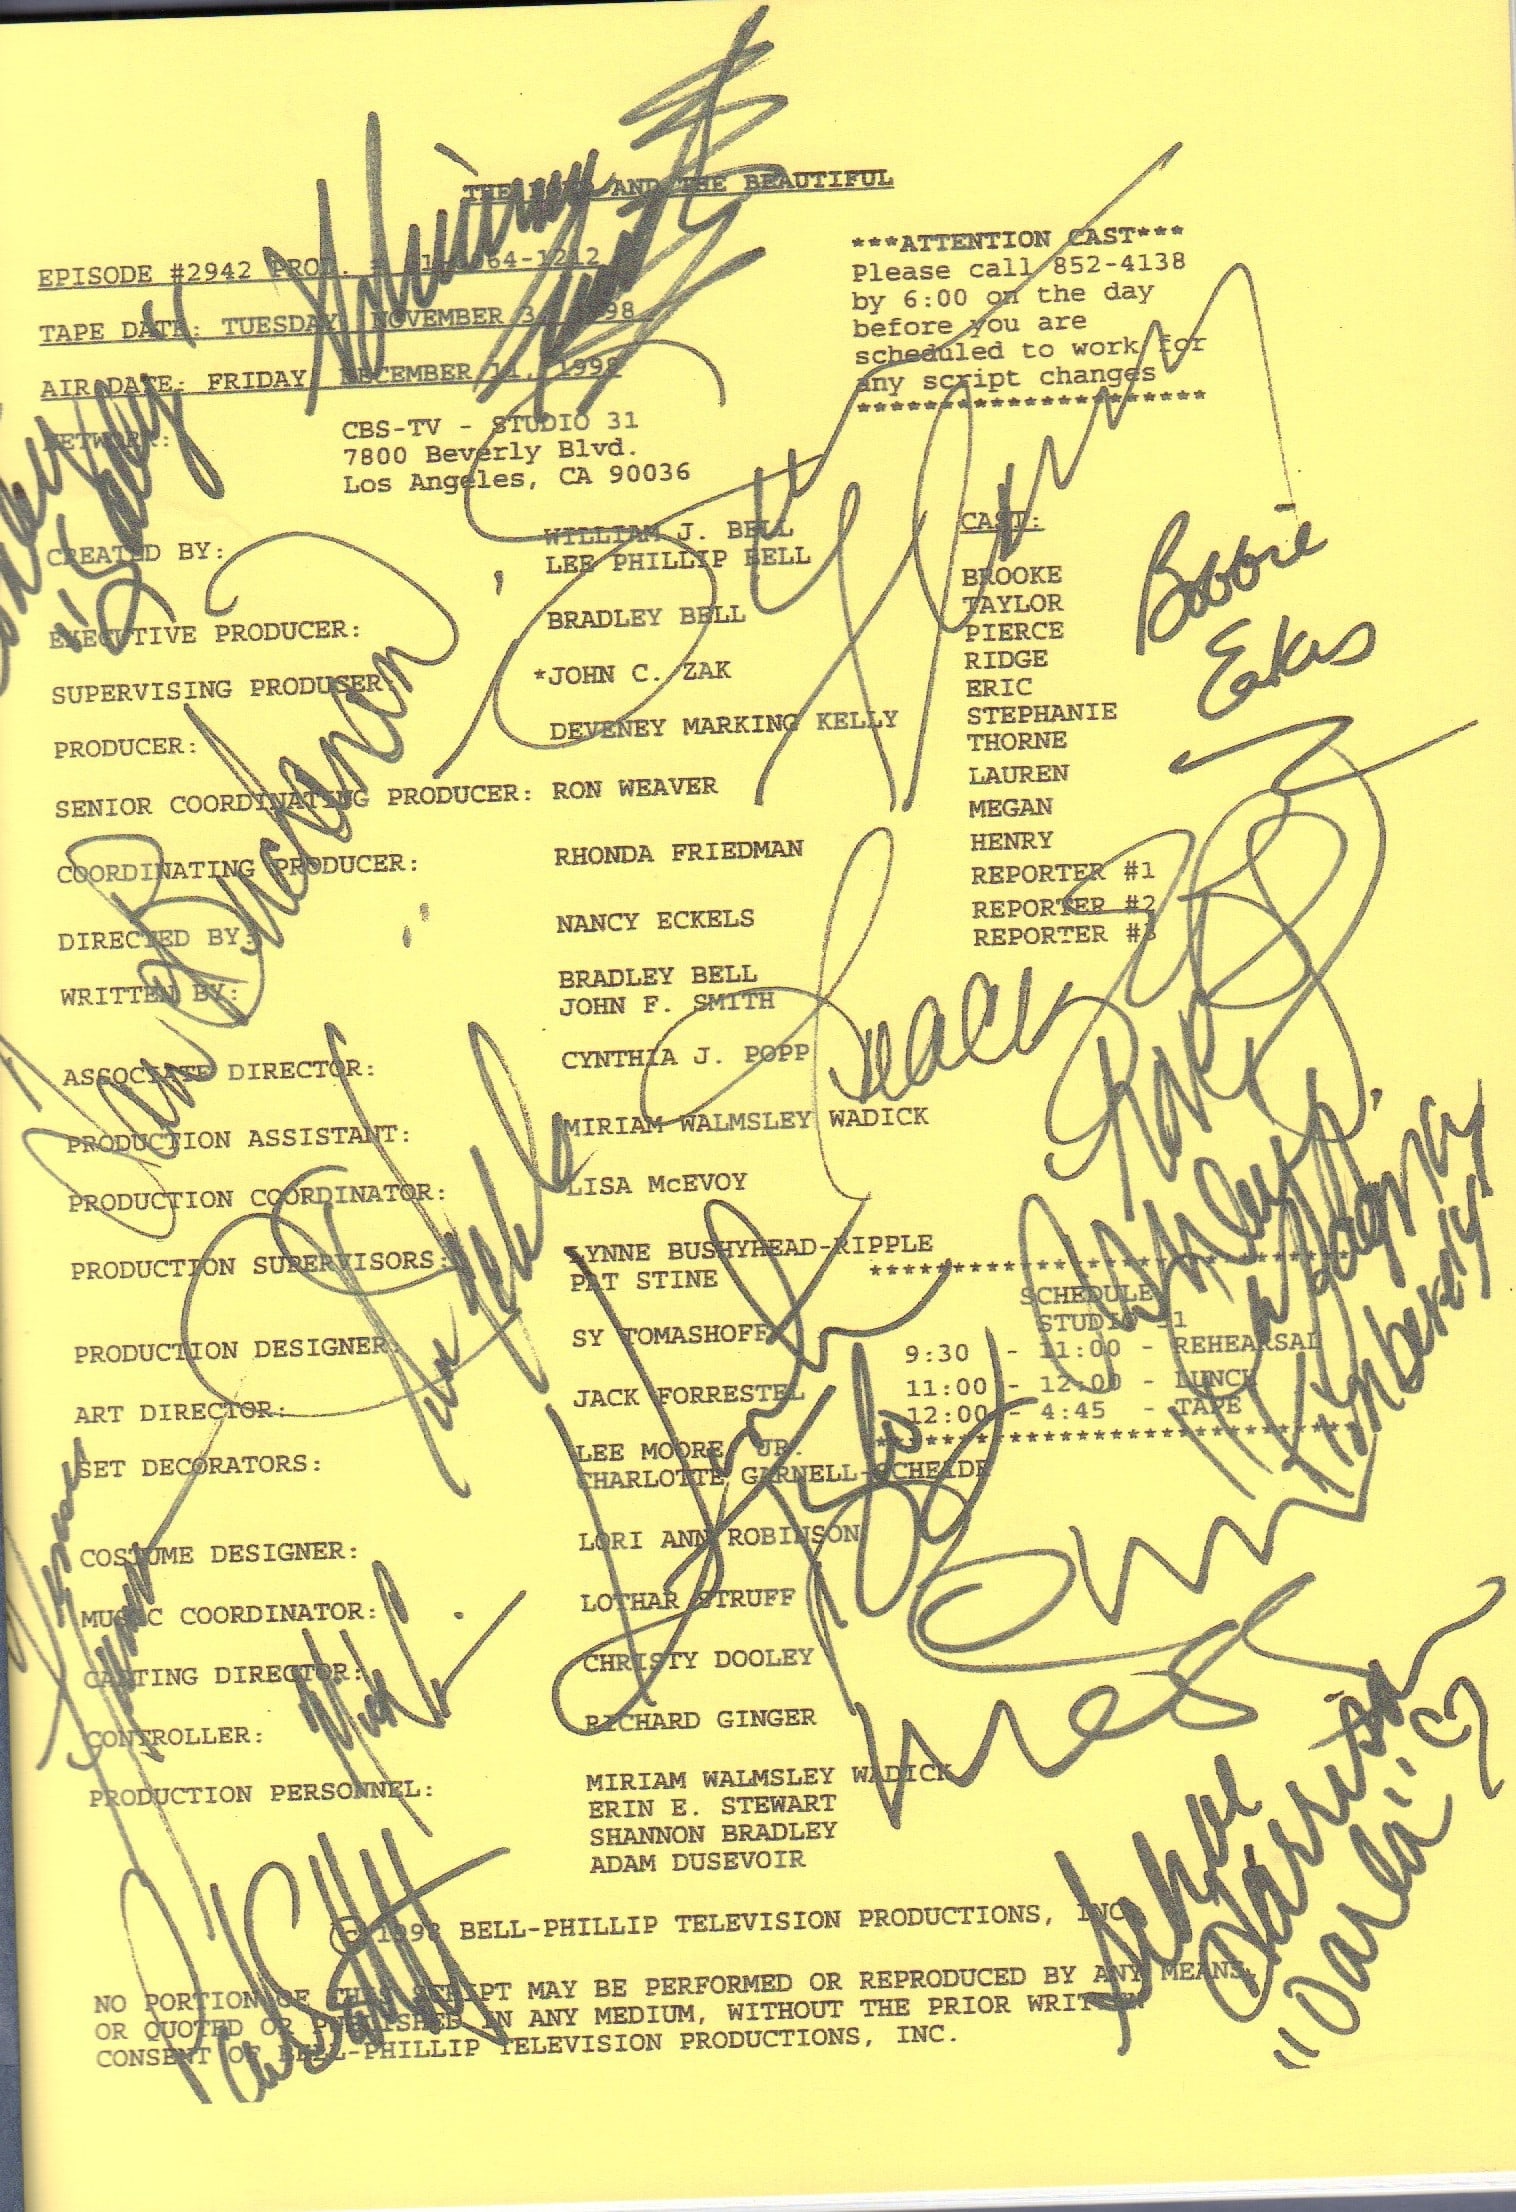 THE BOLD AND THE BEAUTIFUL
EPISODE #2942 PROD.
TAPE DATE: TUESDAY, NOVEMBER 3, 1998
AIR DATE: FRIDAY, DECEMBER 11, 1998
***ATTENTION CAST***
Please call 852-4138
by 6:00 on the day
before you are
scheduled to work for
any script changes
*********************
NETWORK:
CBS-TV - STUDIO 31
7800 Beverly Blvd.
Los Angeles, CA 90036
CREATED BY:
WILLIAM J. BELL
LEE PHILLIP BELL
EXECUTIVE PRODUCER:
BRADLEY BELL
SUPERVISING PRODUSER:
*JOHN C. ZAK
PRODUCER:
DEVENEY MARKING KELLY
SENIOR COORDINATING PRODUCER: RON WEAVER
COORDINATING PRODUCER:
RHONDA FRIEDMAN
DIRECTED BY:
NANCY ECKELS
WRITTEN BY:
BRADLEY BELL
JOHN F. SMITH
ASSOCIATE DIRECTOR:
CYNTHIA J. POPP
PRODUCTION ASSISTANT:
MIRIAM WALMSLEY WADICK
PRODUCTION COORDINATOR:
LISA McEVOY
PRODUCTION SUPERVISORS:
LYNNE BUSHYHEAD-RIPPLE
PAT STINE
PRODUCTION DESIGNER:
SY TOMASHOFF
ART DIRECTOR:
JACK FORRESTEL
SET DECORATORS:
LEE MOORE, JR.
CHARLOTTE GARNELL-SCHEIDE
COSTUME DESIGNER:
LORI ANN ROBINSON
MUSIC COORDINATOR:
LOTHAR STRUFF
CASTING DIRECTOR:
CHRISTY DOOLEY
CONTROLLER:
RICHARD GINGER
PRODUCTION PERSONNEL:
MIRIAM WALMSLEY WADICK
ERIN E. STEWART
SHANNON BRADLEY
ADAM DUSEVOIR
CAST:
BROOKE
TAYLOR
PIERCE
RIDGE
ERIC
STEPHANIE
THORNE
LAUREN
MEGAN
HENRY
REPORTER #1
REPORTER #2
REPORTER #3
Bobbie
Eakes
Ian Buchanan
SCHEDULE
STUDIO 31
9:30 - 11:00 - REHEARSAL
11:00 - 12:00 - LUNCH
12:00 - 4:45 - TAPE
Schae
Harrison
"Darla"
© 1998 BELL-PHILLIP TELEVISION PRODUCTIONS, INC.
NO PORTION OF THIS SCRIPT MAY BE PERFORMED OR REPRODUCED BY ANY MEANS,
OR QUOTED OR PUBLISHED IN ANY MEDIUM, WITHOUT THE PRIOR WRITTEN
CONSENT OF BELL-PHILLIP TELEVISION PRODUCTIONS, INC.